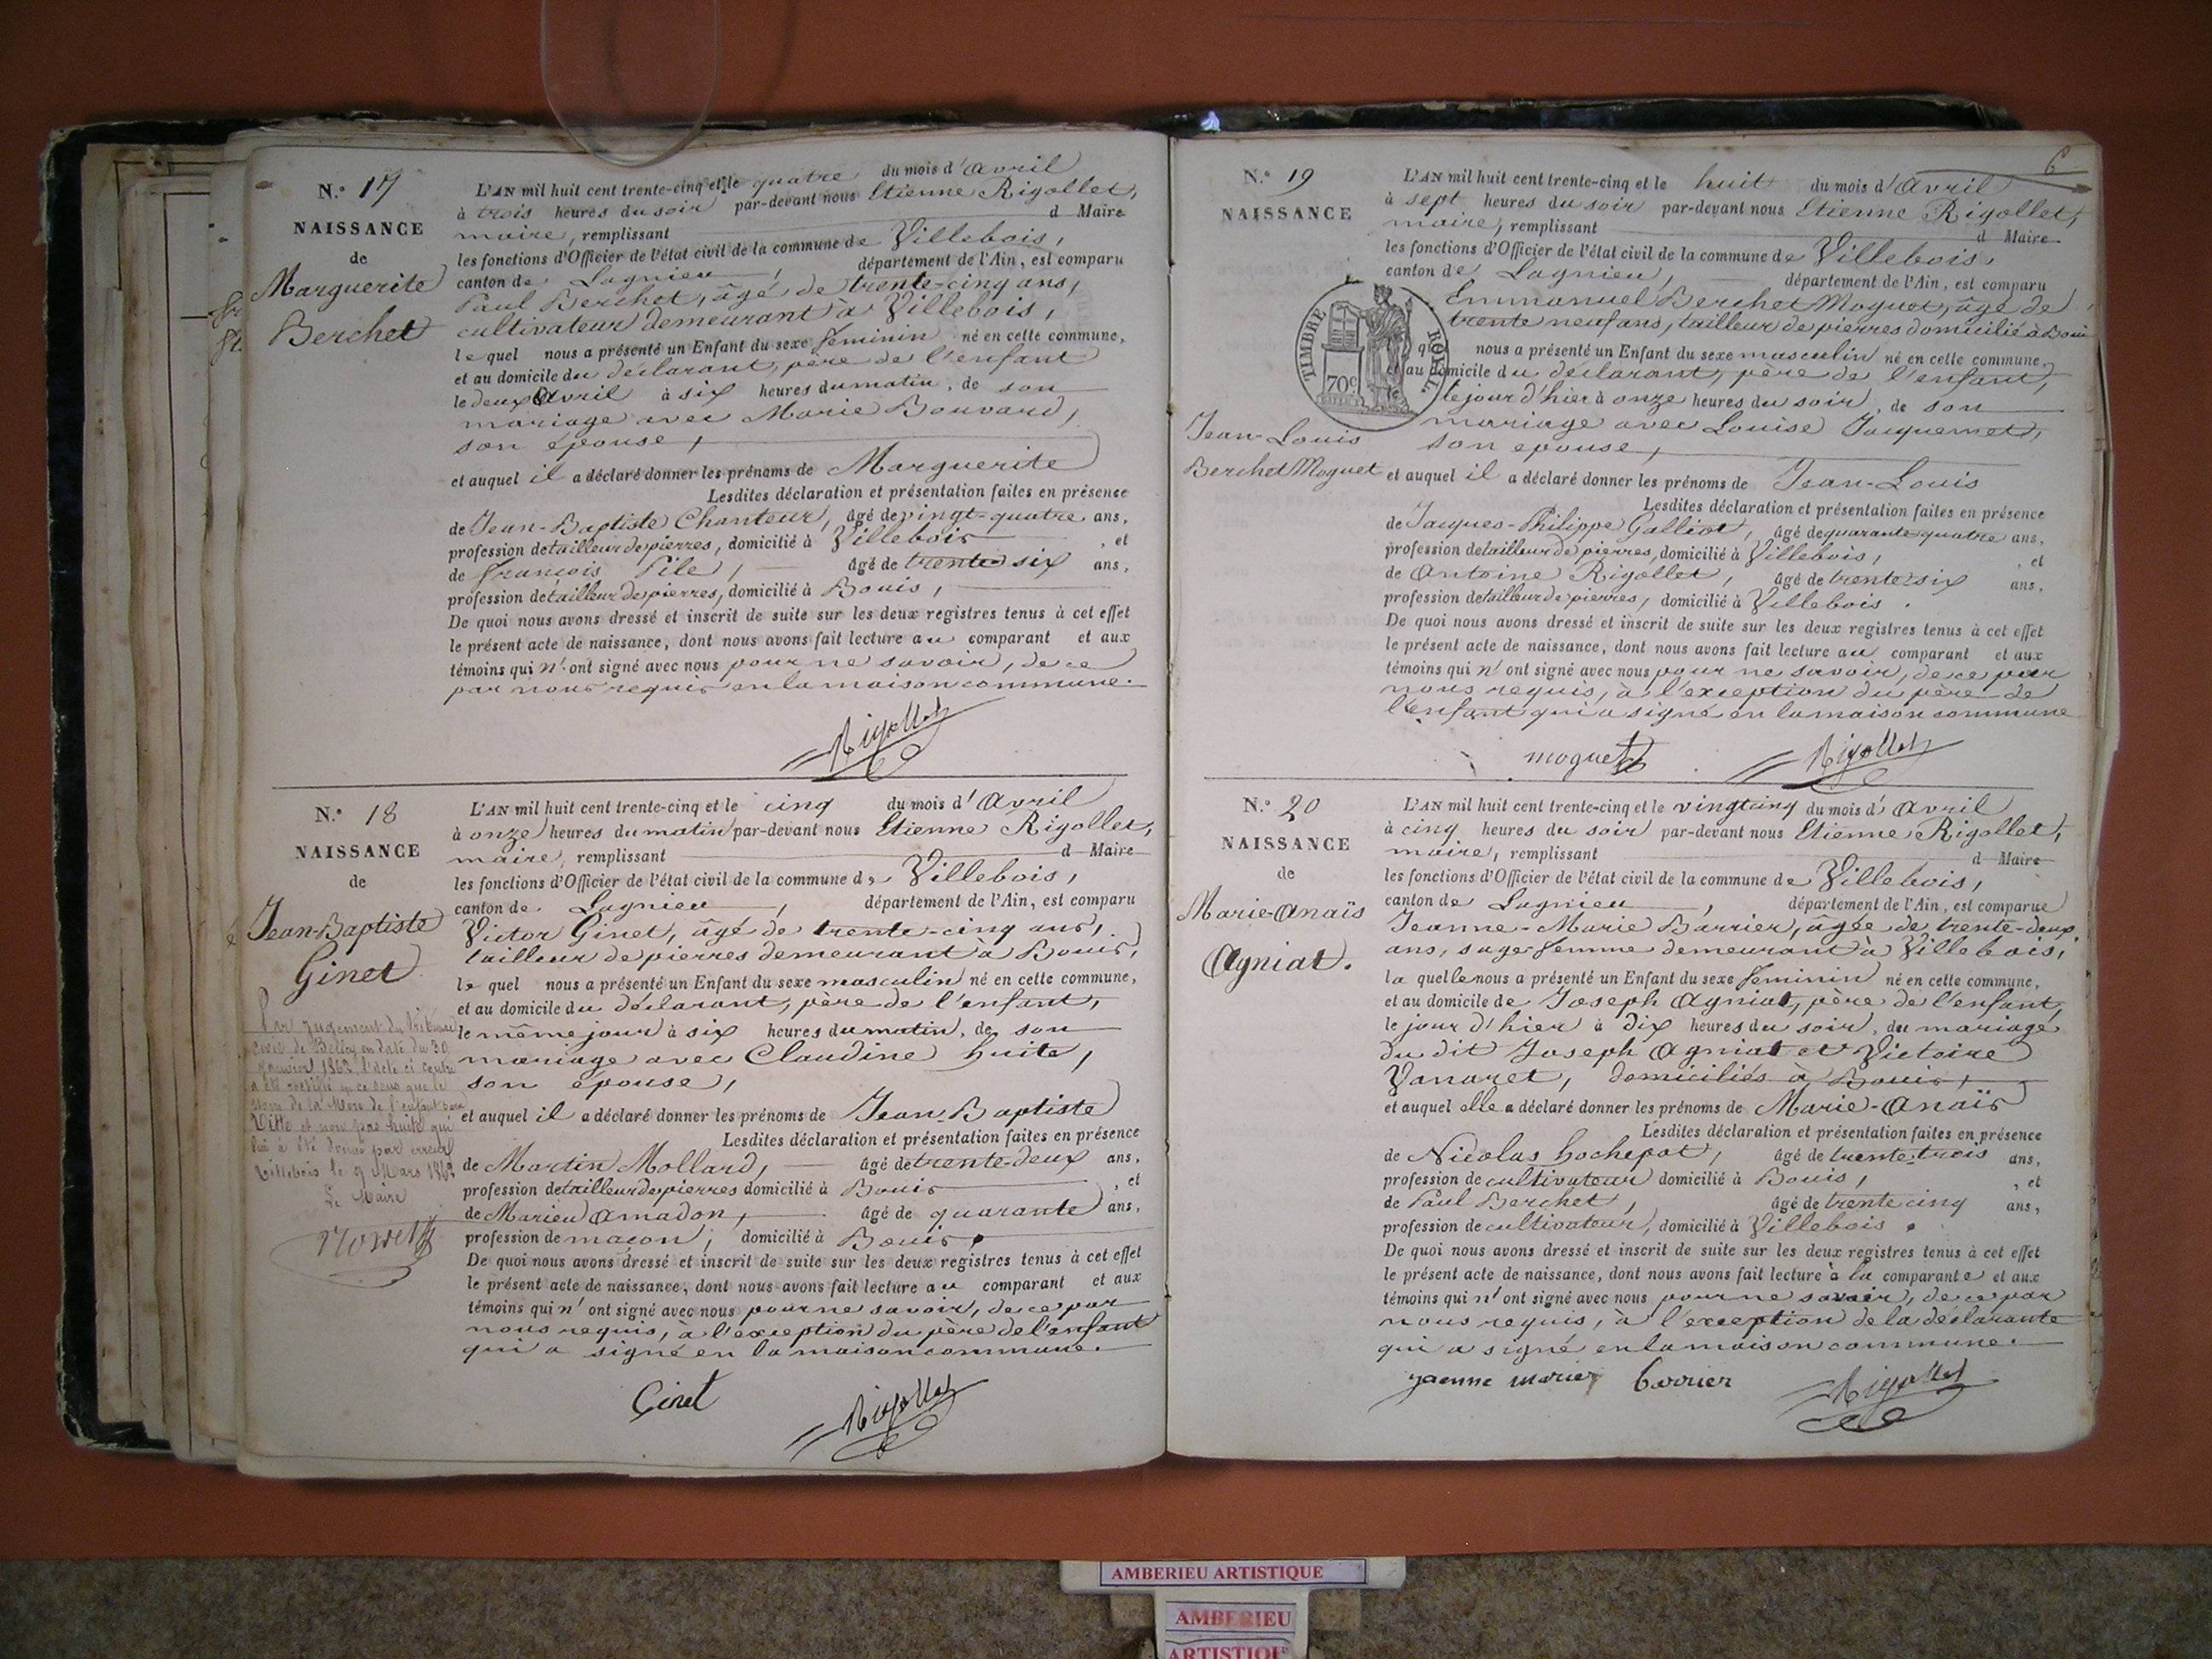 N.° 17
NAISSANCE
de
Marguerite
Berchet
L'AN mil huit cent trente-cinq et le quatre du mois d'avril
à trois heures du soir par-devant nous Etienne Rigollet,
maire, remplissant d Maire
les fonctions d'Officier de l'état civil de la commune de Villebois,
canton de Lagnieu, département de l'Ain, est comparu
Paul Berchet, âgé de trente-cinq ans,
cultivateur demeurant à Villebois,
le quel nous a présenté un Enfant du sexe féminin né en cette commune,
et au domicile du déclarant, père de l'enfant
le deux avril à six heures du matin, de son
mariage avec Marie Bouvard,
son épouse,
et auquel il a déclaré donner les prénoms de Marguerite
Lesdites déclaration et présentation faites en présence
de Jean-Baptiste Chanteur, âgé de vingt-quatre ans,
profession de tailleur de pierres, domicilié à Villebois, et
de François Pile, âgé de trente six ans,
profession de tailleur de pierres, domicilié à Bouis,
De quoi nous avons dressé et inscrit de suite sur les deux registres tenus à cet effet
le présent acte de naissance, dont nous avons fait lecture au comparant et aux
témoins qui n'ont signé avec nous pour ne savoir, de ce
par nous requis en la maison commune.
Rigollet
N.° 18
NAISSANCE
de
Jean-Baptiste
Ginet
Par jugement du tribunal
civil de Belley en date du 30
janvier 1862, l'acte ci contre
a été rectifié en ce sens que le
nom de la Mère de l'enfant sera
Vitte et non pas huite qui
lui a été donné par erreur
Villebois le 9 Mars 1862
Le Maire
L'AN mil huit cent trente-cinq et le cinq du mois d'avril
à onze heures du matin par-devant nous Etienne Rigollet,
maire, remplissant d Maire
les fonctions d'Officier de l'état civil de la commune de Villebois,
canton de Lagnieu, département de l'Ain, est comparu
Victor Ginet, âgé de trente-cinq ans,
tailleur de pierres demeurant à Bouis,
le quel nous a présenté un Enfant du sexe masculin né en cette commune,
et au domicile du déclarant, père de l'enfant,
le même jour à six heures du matin, de son
mariage avec Claudine huite,
son épouse,
et auquel il a déclaré donner les prénoms de Jean-Baptiste
Lesdites déclaration et présentation faites en présence
de Martin Mollard, âgé de trente-deux ans,
profession de tailleur de pierres domicilié à Bouis, et
de Marieu Amadon, âgé de quarante ans,
profession de maçon, domicilié à Bouis.
De quoi nous avons dressé et inscrit de suite sur les deux registres tenus à cet effet
le présent acte de naissance, dont nous avons fait lecture au comparant et aux
témoins qui n'ont signé avec nous pour ne savoir, de ce par
nous requis, à l'exception du père de l'enfant
qui a signé en la maison commune.
Ginet Rigollet
6
N.° 19
NAISSANCE
Jean-Louis
Berchet Moguet
TIMBRE ROYAL.
70c
L'AN mil huit cent trente-cinq et le huit du mois d'avril
à sept heures du soir par-devant nous Etienne Rigollet,
maire, remplissant d Maire
les fonctions d'Officier de l'état civil de la commune de Villebois,
canton de Lagnieu, département de l'Ain, est comparu
Emmanuel Berchet Moguet, âgé de
trente neuf ans, tailleur de pierres domicilié à Bouis
qu nous a présenté un Enfant du sexe masculin né en cette commune,
et au domicile du déclarant, père de l'enfant,
le jour d'hier à onze heures du soir, de son
mariage avec Louise Jacquemet,
son epouse,
et auquel il a déclaré donner les prénoms de Jean-Louis
Lesdites déclaration et présentation faites en présence
de Jacques-Philippe Galliot, âgé de quarante quatre ans,
profession de tailleur de pierres, domicilié à Villebois, et
de Antoine Rigollet, âgé de trente-six ans,
profession de tailleur de pierres, domicilié à Villebois.
De quoi nous avons dressé et inscrit de suite sur les deux registres tenus à cet effet
le présent acte de naissance, dont nous avons fait lecture au comparant et aux
témoins qui n'ont signé avec nous pour ne savoir, de ce par
nous requis, à l'exception du père de
l'enfant qui a signé en la maison commune
moguet Rigollet
N.° 20
NAISSANCE
de
Marie-Anaïs
Agniat.
L'AN mil huit cent trente-cinq et le vingt cinq du mois d'avril
à cinq heures du soir par-devant nous Etienne Rigollet,
maire, remplissant d Maire
les fonctions d'Officier de l'état civil de la commune de Villebois,
canton de Lagnieu, département de l'Ain, est comparue
Jeanne-Marie Barrier, âgée de trente-deux
ans, sage femme demeurant à Villebois,
la quelle nous a présenté un Enfant du sexe féminin né en cette commune,
et au domicile de Joseph Agniat, père de l'enfant,
le jour d'hier à dix heures du soir, du mariage
du dit Joseph Agniat et Victoire
Vanaret, domiciliés à Bouis,
et auquel elle a déclaré donner les prénoms de Marie-Anaïs
Lesdites déclaration et présentation faites en présence
de Nicolas hochepot, âgé de trente-trois ans,
profession de cultivateur domicilié à Bouis, et
de Paul Berchet, âgé de trente cinq ans,
profession de cultivateur, domicilié à Villebois.
De quoi nous avons dressé et inscrit de suite sur les deux registres tenus à cet effet
le présent acte de naissance, dont nous avons fait lecture à la comparante et aux
témoins qui n'ont signé avec nous pour ne savoir, de ce par
nous requis, à l'exception de la déclarante
qui a signé en la maison commune.
jaenne marier barrier Rigollet
AMBERIEU ARTISTIQUE
AMBERIEU
ARTISTIQUE